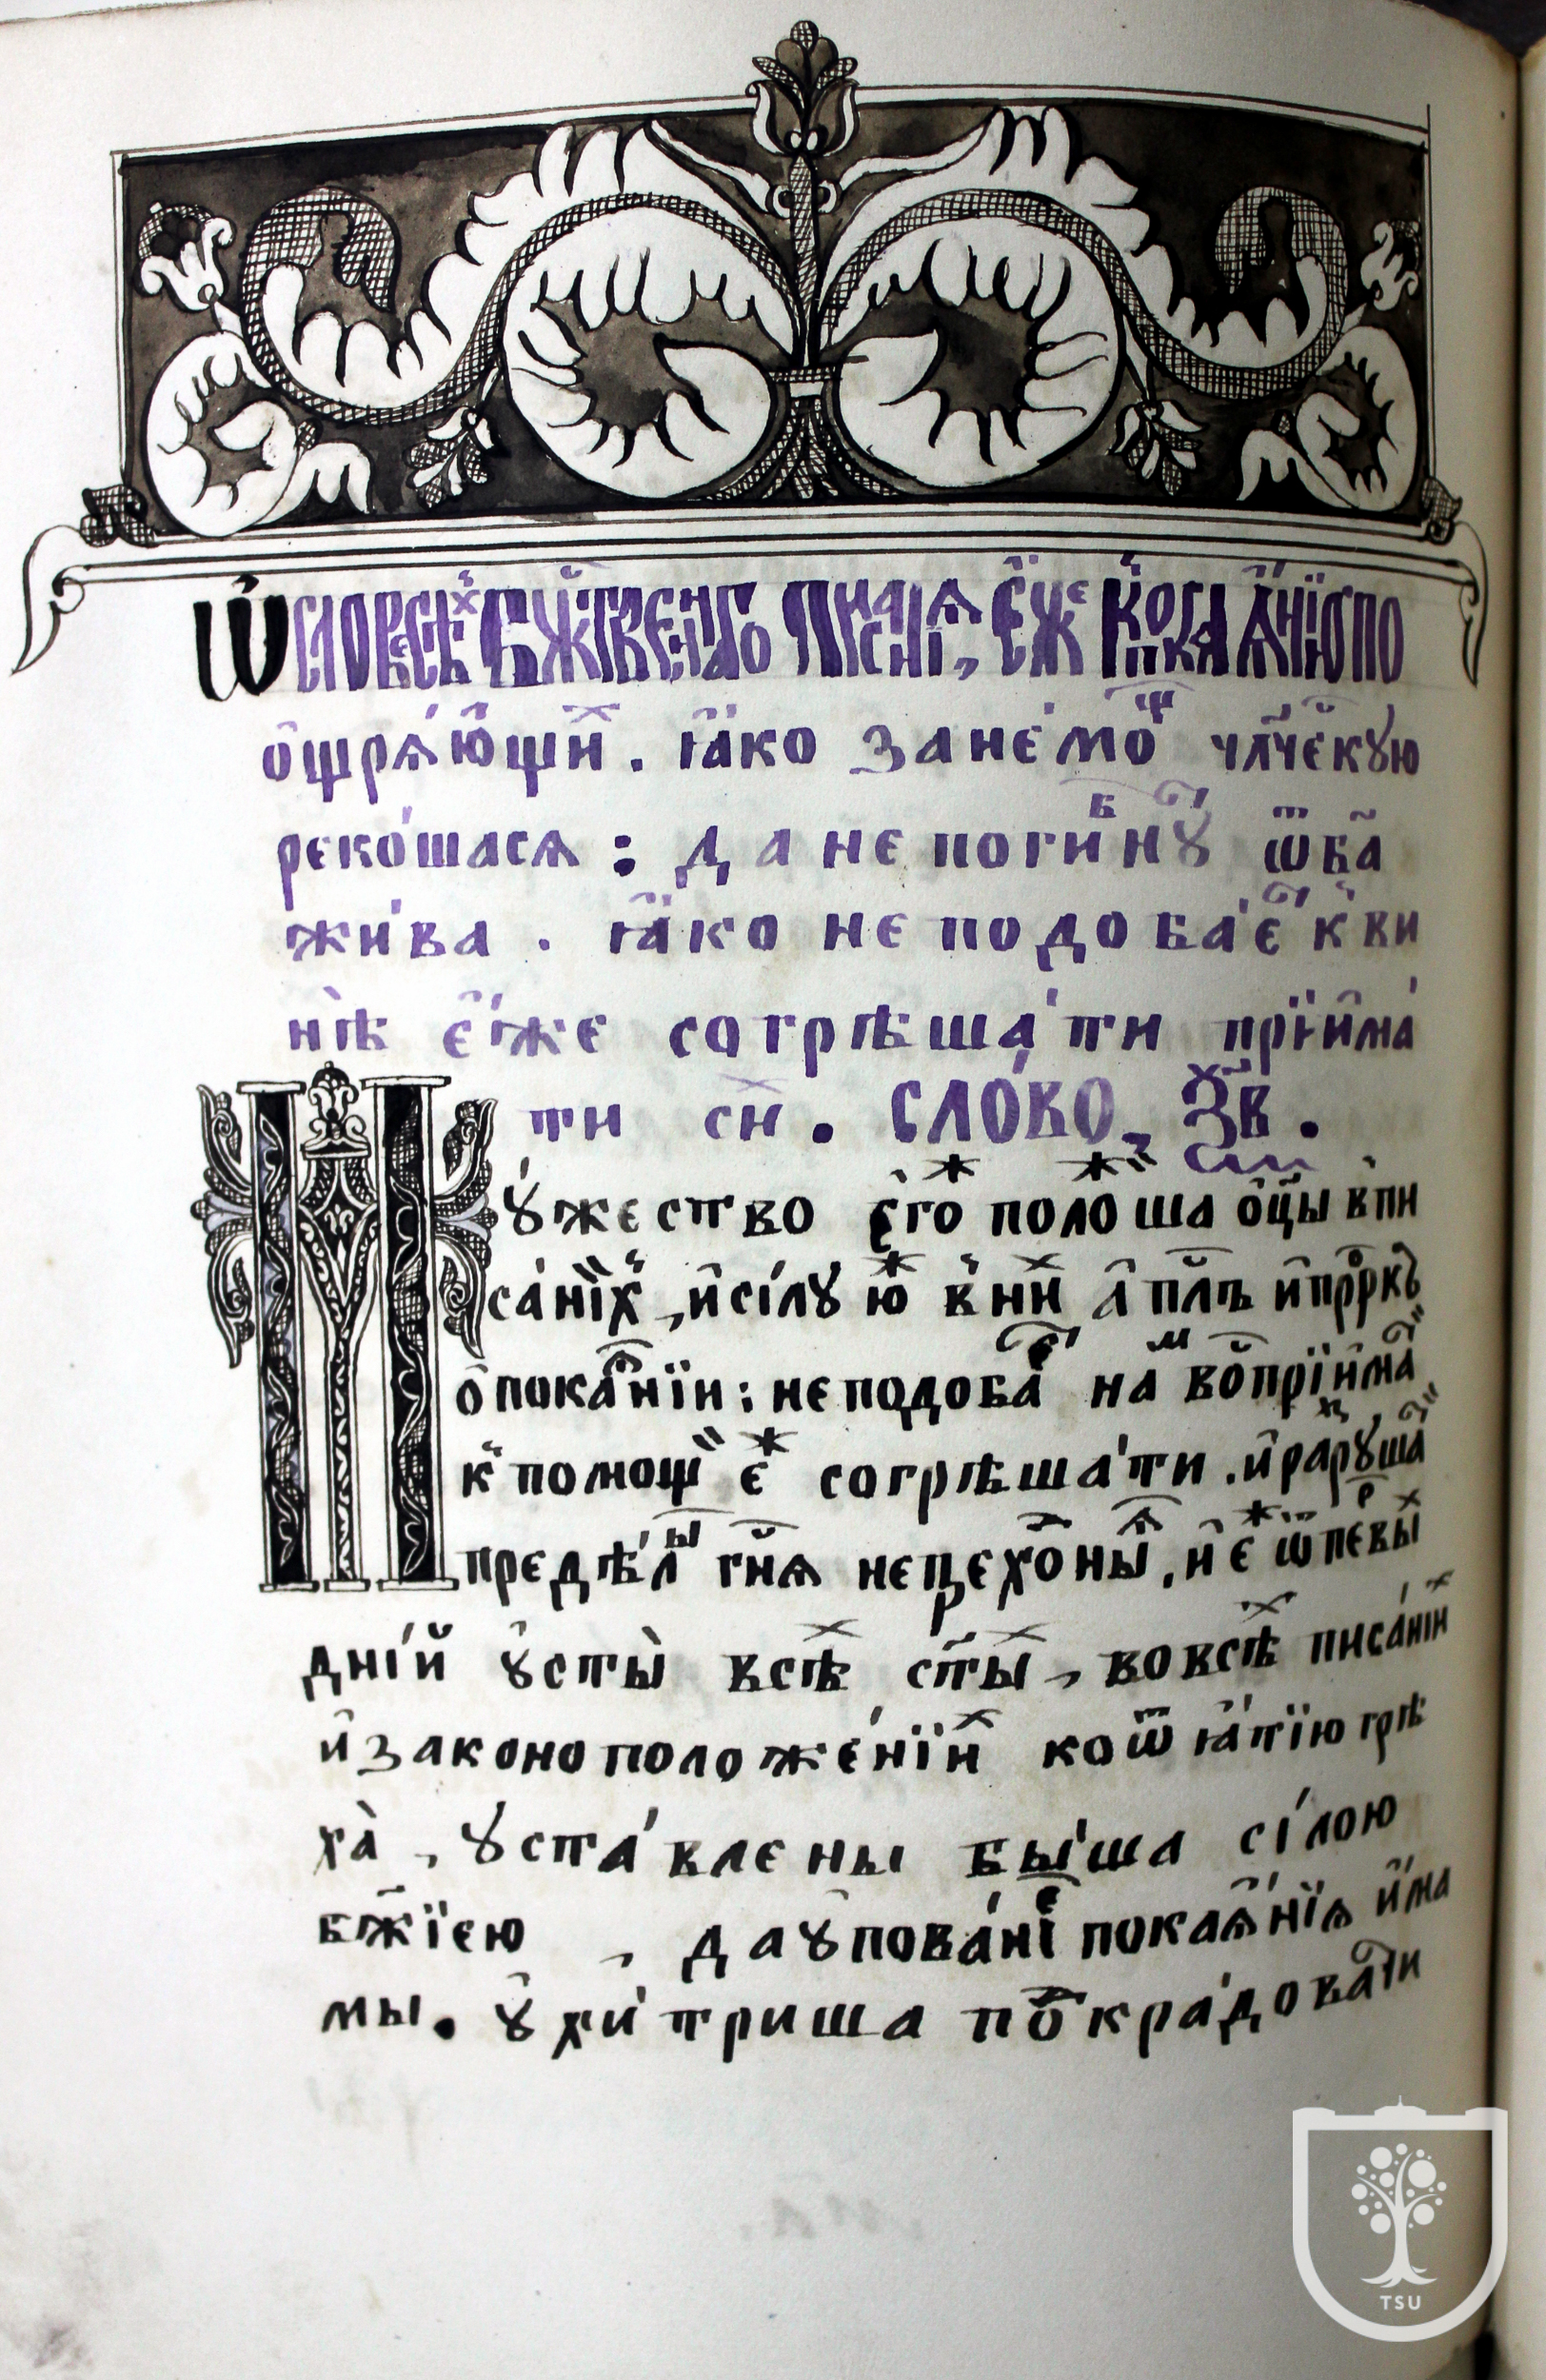 Ѡ словесѣ́х бж҃твенаго писанїѧ, є҆́же к покаѧ́нїю по
ѻ҆щрѧ́ю҆щи́х. ꙗ҆́ко за не́мощ чл҃ческꙋю
реко́шасѧ: да не поги́бнꙋт ѿ ба҃
жи́ва. ꙗ҆́ко не подоба́ет к ви
нѣ̀ є҆́же согрѣша́ти прїи҆ма́
ти сїх. СЛО́ВО, З҃В.
Мꙋ́жество є҆го́ж положиша ѻ҆ц҃ы в пи
са́нїих, и҆ сі́лꙋ ю҆ж в них а҆пⷭ҇лъ и҆ прⷪ҇ркъ
ѻ҆ покаѧ́нїи: не подоба́ет нам во прїи҆ма́т
к помощи є҆ж согрѣша́ти. и҆ разрꙋша́т
предѣ́лы гн҃ѧ непреходны, и҆ є҆ж ѿ первых
дні́й ꙋ҆сты̀ всѣх ст҃ых, во всѣх писа́нїих
и҆ законоположе́нїих коѿ ꙗ҆́тїю грѣ
ха̀, ꙋ҆ста́влены бы́ша сі́лою
бж҃їею, да ꙋ҆пова́нїе покаѧ́нїѧ и҆́ма
мы. ꙋ҆хи́триша покра́довати
TSU